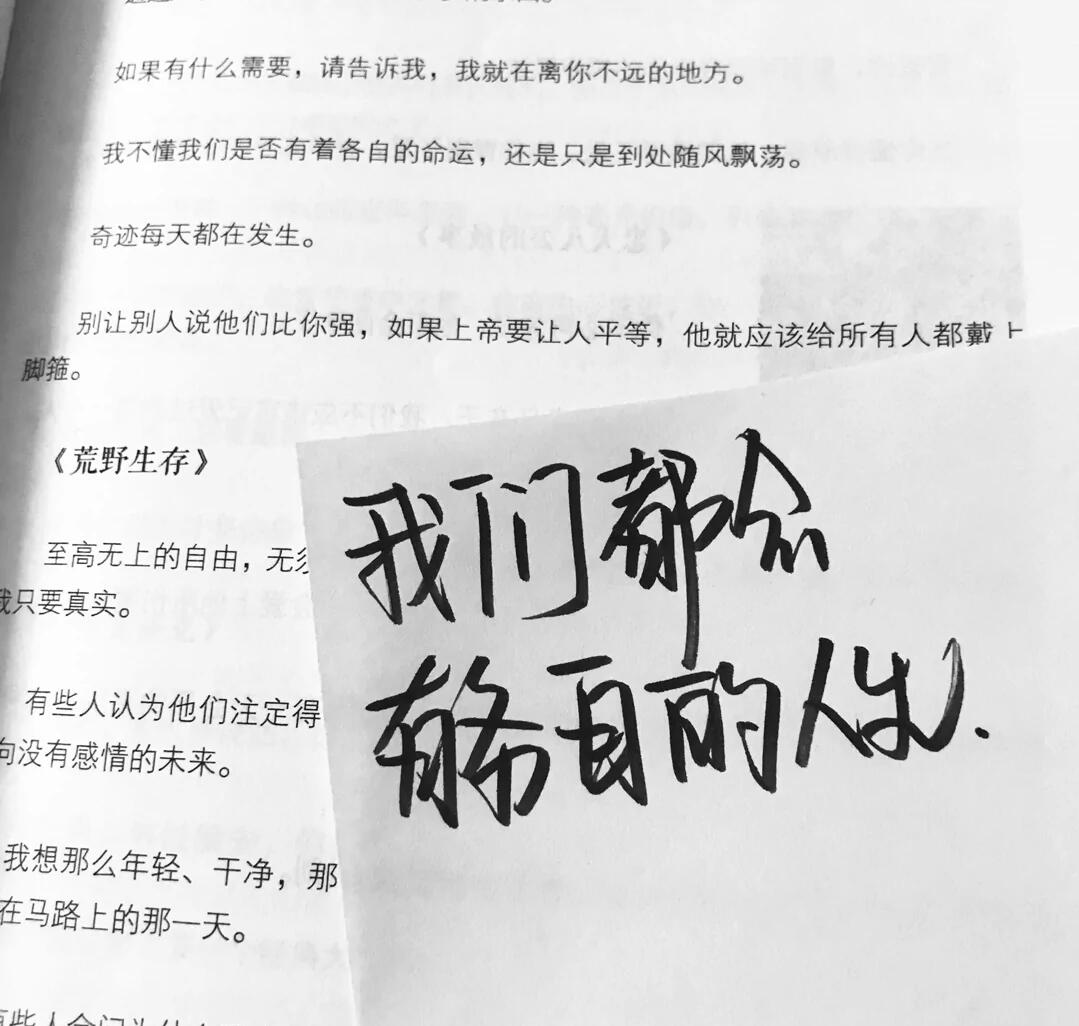 如果有什么需要，请告诉我，我就在离你不远的地方。
我不懂我们是否有着各自的命运，还是只是到处随风飘荡。
奇迹每天都在发生。
别让别人说他们比你强，如果上帝要让人平等，他就应该给所有人都戴上
脚箍。
《荒野生存》
至高无上的自由，无须
我只要真实。
有些人认为他们注定得
向没有感情的未来。
我想那么年轻、干净，那
在马路上的那一天。
我们都会
有各自的人生.